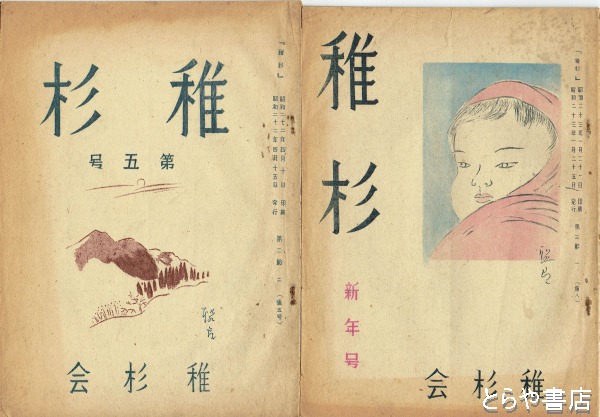 稚杉
第五号
稚杉会
『稚杉』
昭和二十二年四月十日 印刷
昭和二十二年四月十五日 発行
第二節 二 (第五号)
稚杉
新年号
稚杉会
『稚杉』
昭和二十三年一月二十一日 印刷
昭和二十三年一月二十五日 発行
第三節 一
とらや書店